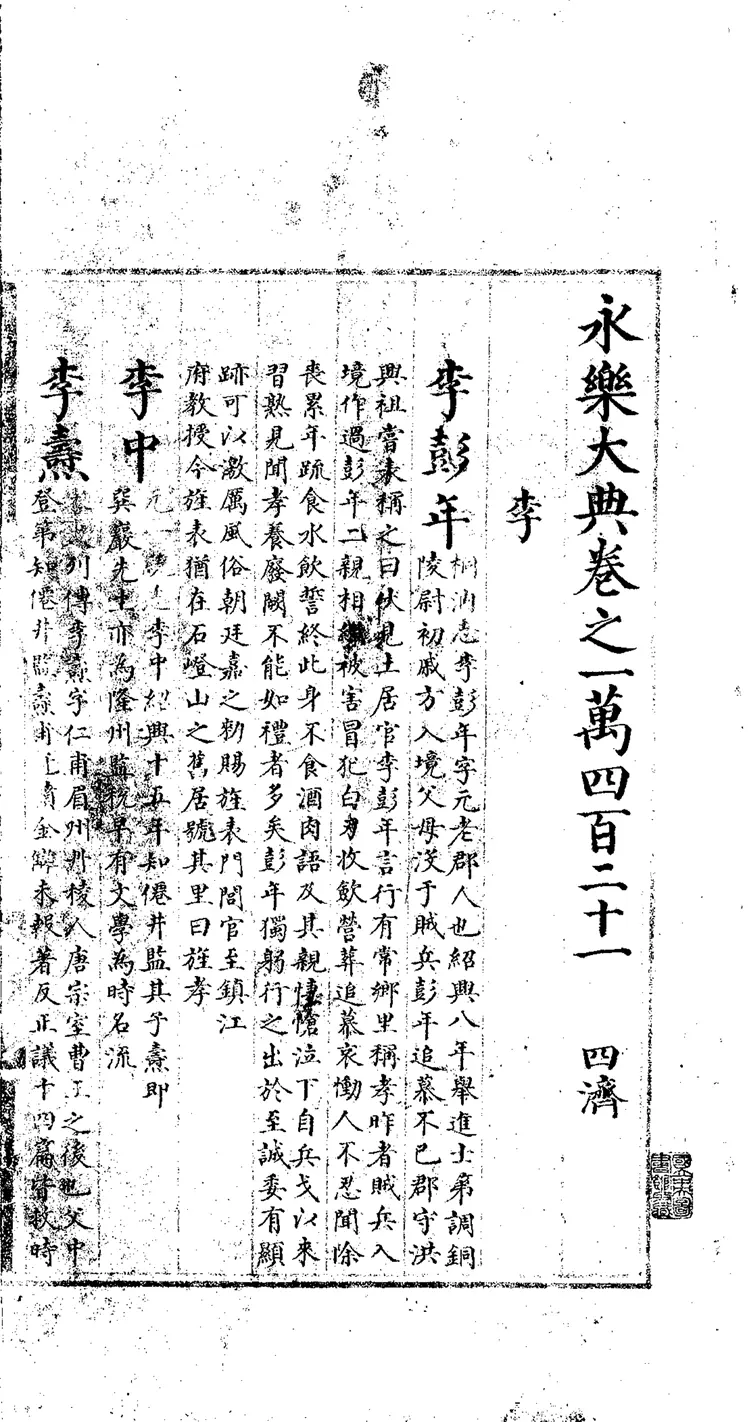 永樂大典卷之一萬四百二十一 四濟
李
李彭年
桐汭志李彭年字元老郡人也紹興八年舉進士第調銅
陵尉初戚方入境父母沒于賊兵彭年追慕不已郡守洪
興祖嘗表稱之曰伏見土居官李彭年言行有常鄉里稱孝昨者賊兵入
境作過彭年二親相繼被害冒犯白刃收斂營葬追慕哀慟人不忍聞除
喪累年疏食水飲誓終此身不食酒肉語及其親悽愴泣下自兵戈以來
習熟見聞孝養廢闕不能如禮者多矣彭年獨躬行之出於至誠委有顯
跡可以激厲風俗朝廷嘉之勑賜旌表門閭官至鎮江
府教授今旌表猶在石嶝山之舊居號其里曰旌孝
李中
元一統志李中紹興十五年知僊井監其子燾即
巽巖先生亦為隆州監稅早有文學為時名流
李燾
列傳李燾字仁甫眉州丹棱人唐宗室曹王之後也父中
登第知僊井監燾甫冠憤金讎未報著反正議十四篇皆救時